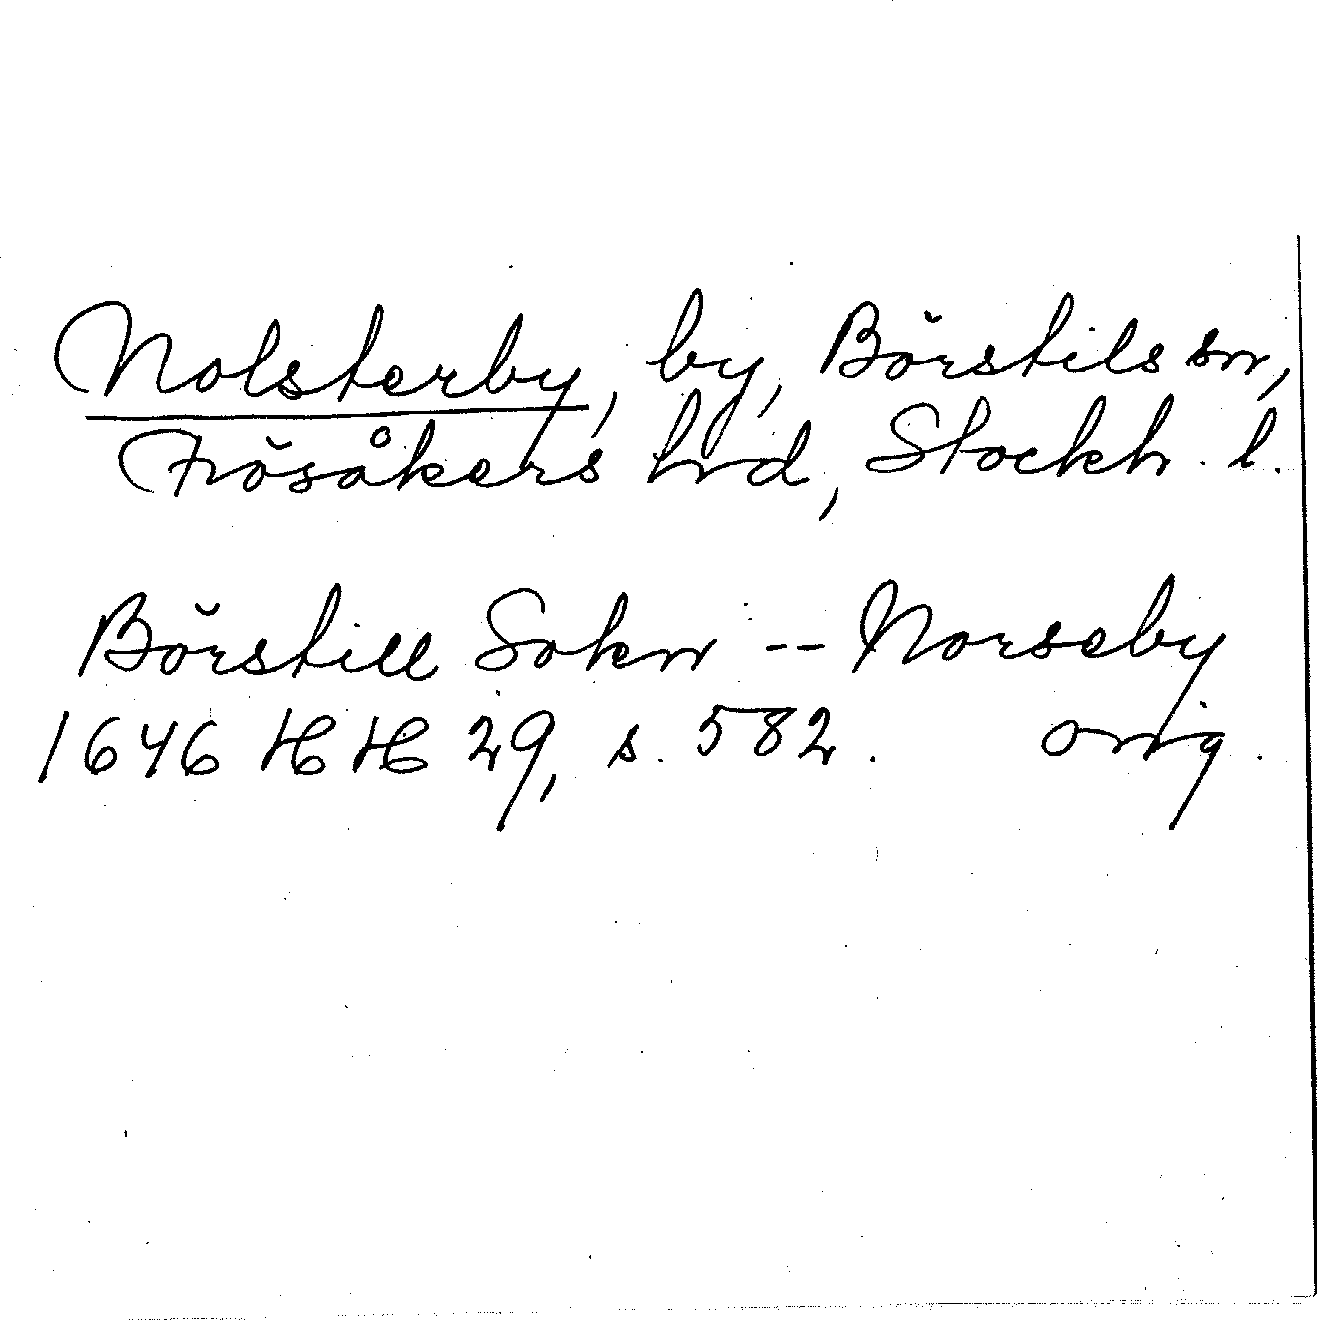 Nolsterby, by, Börstils sn,
Frösåkers hrd, Stockh. l.
Börstill Sokn -- Norseby
1646 HH 29, s. 582. orig.